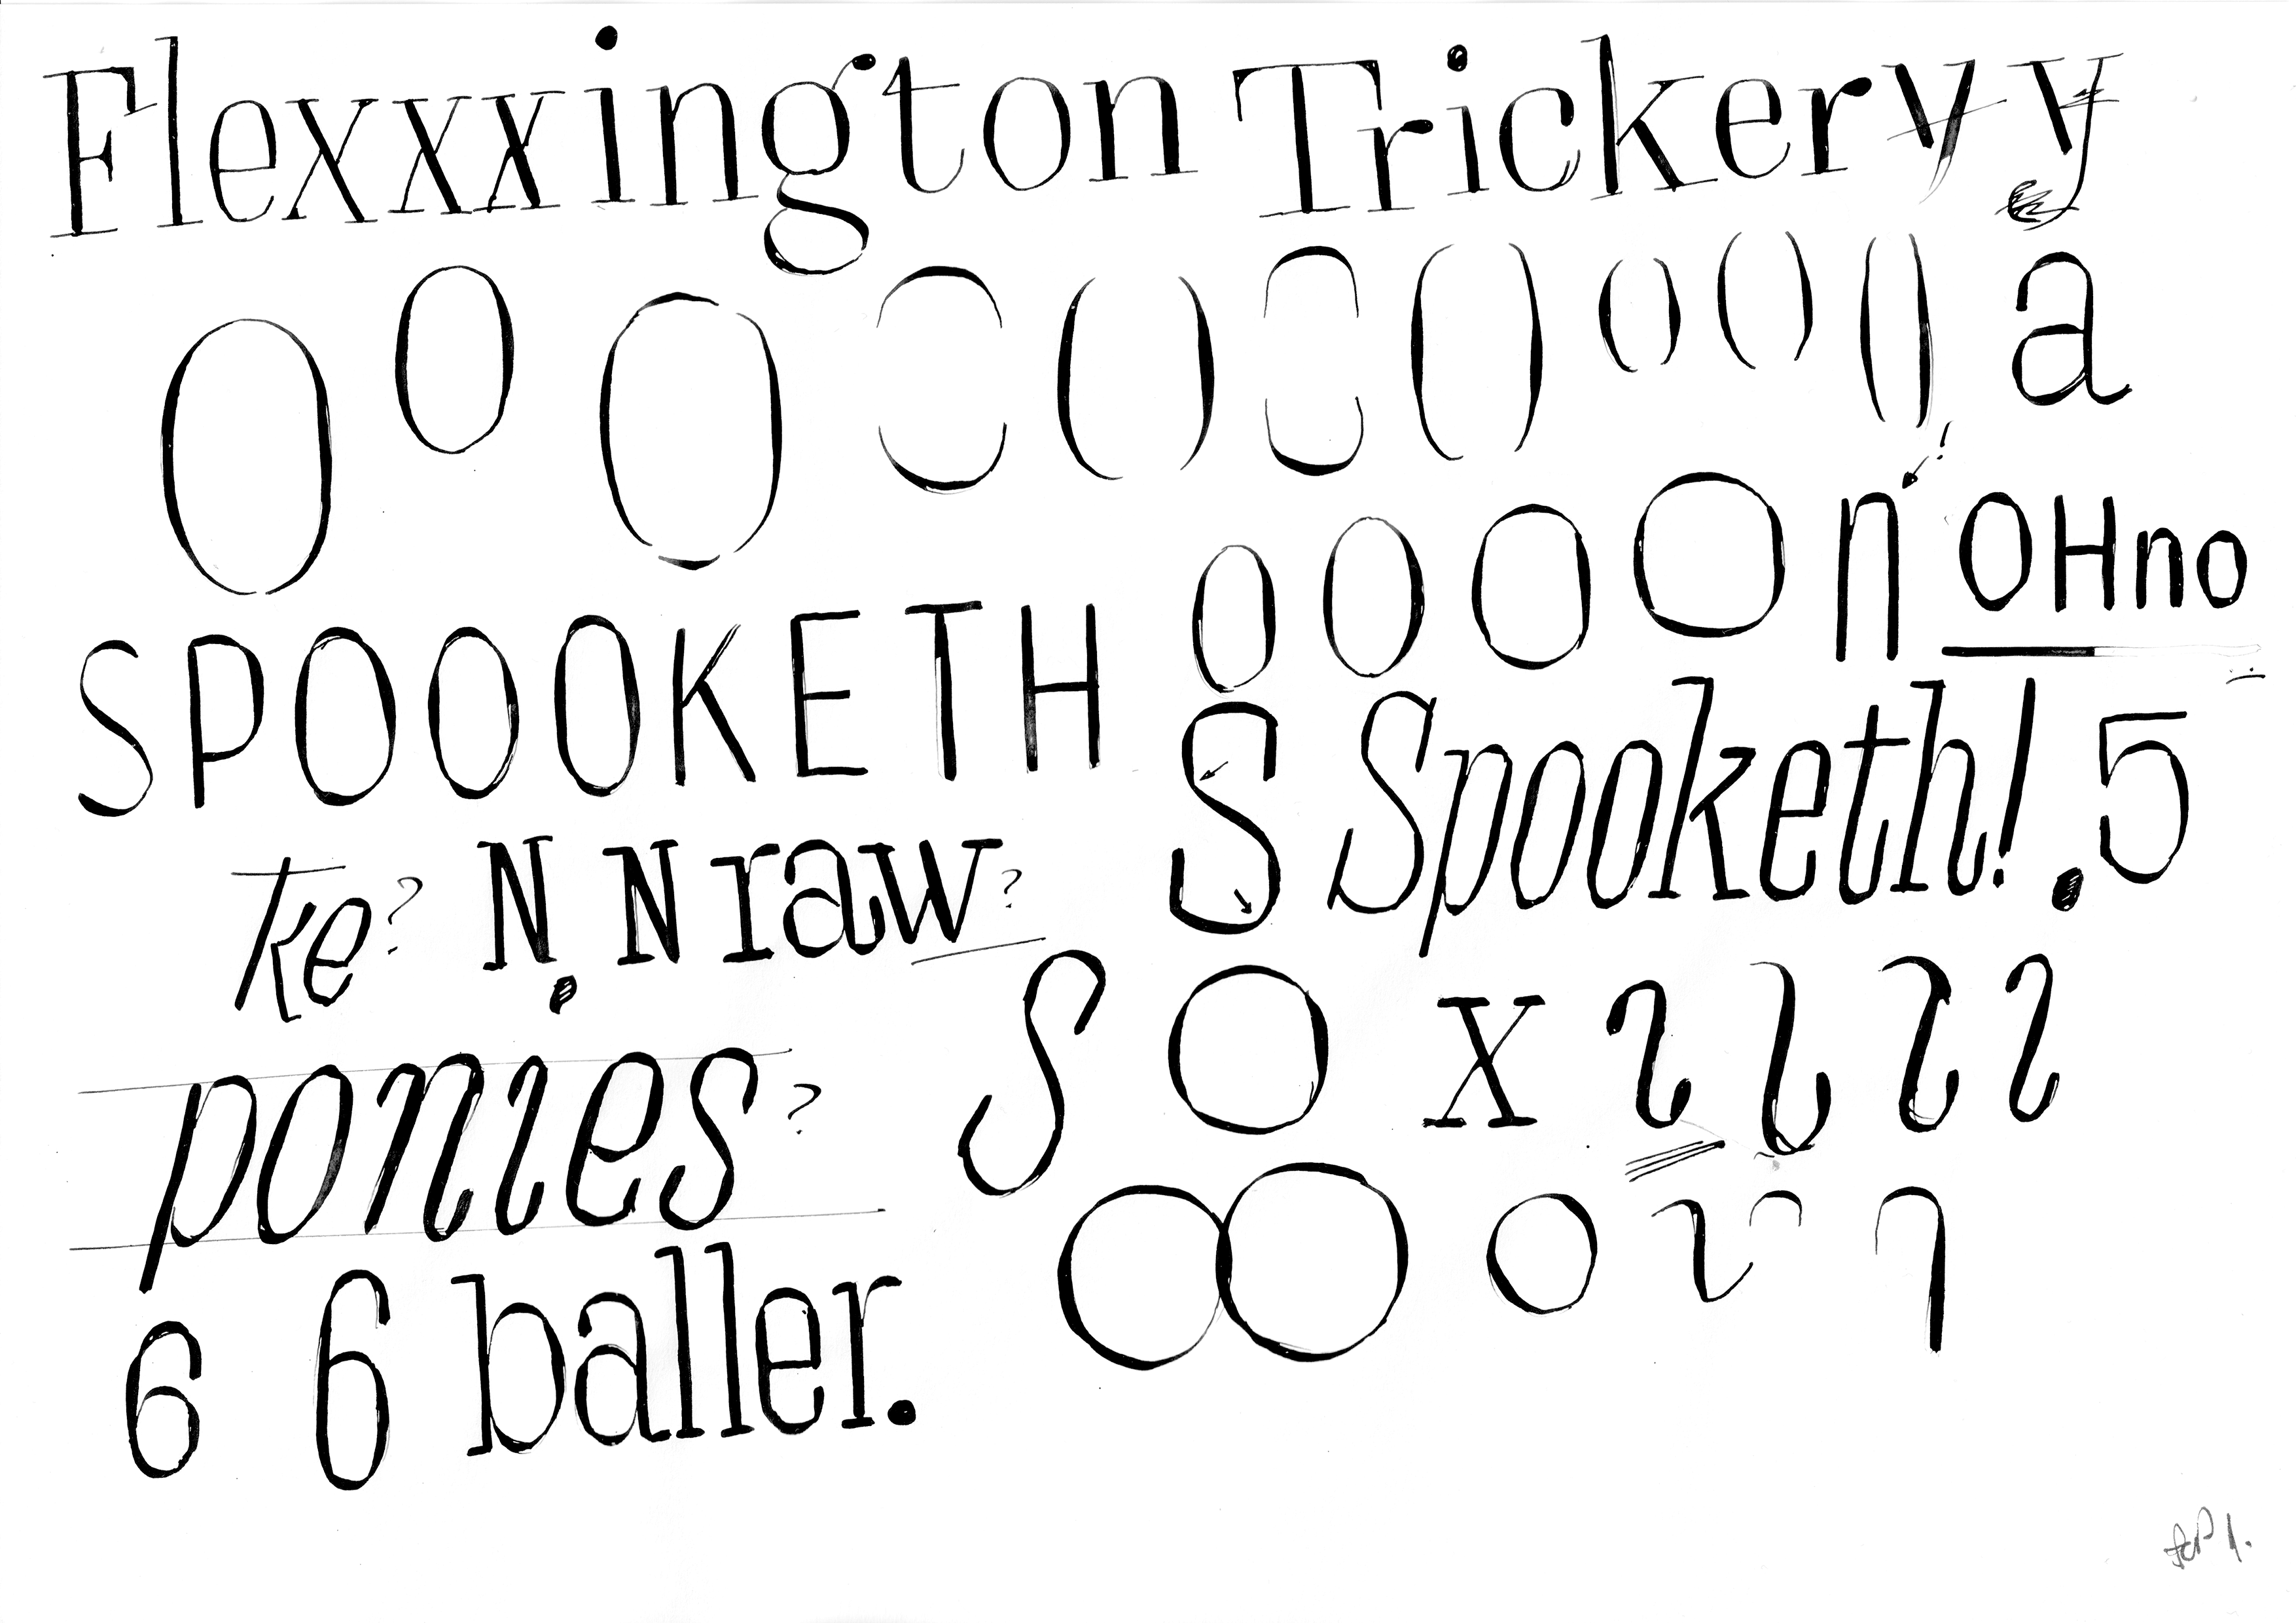 Flexxxington Trickervy
O O O O () O () () () () a
o o o o n ! OHno
SPOOOKETH S Spooketh! 5
ke? N, N raw?
S O x
ponies?
O O o
6 6 baller.